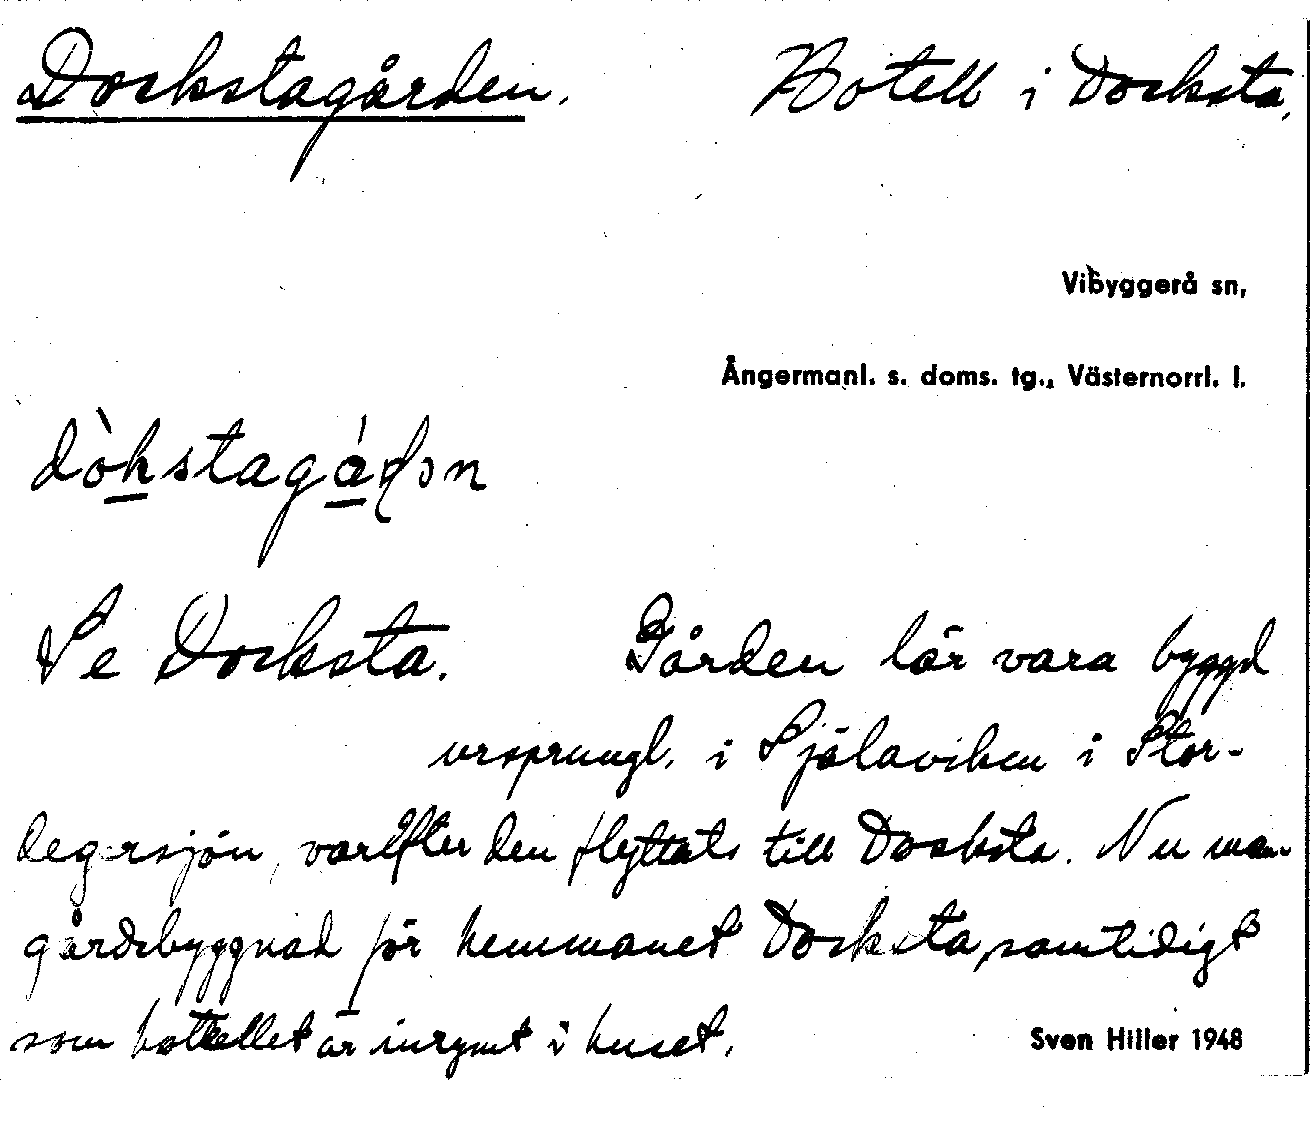 Dockstagården. Hotell i Docksta.
Vibyggerå sn,
Ångermanl. s. doms. tg., Västernorrl. l.
dòkstagáɖən
Se Docksta. Gården lär vara byggd
ursprungl. i Själaviken i Stor-
degersjön, varefter den flyttats till Docksta. Nu man-
gårdsbyggnad för hemmanet Docksta, samtidigt
som hotellet är inrymt i huset.
Sven Hiller 1948